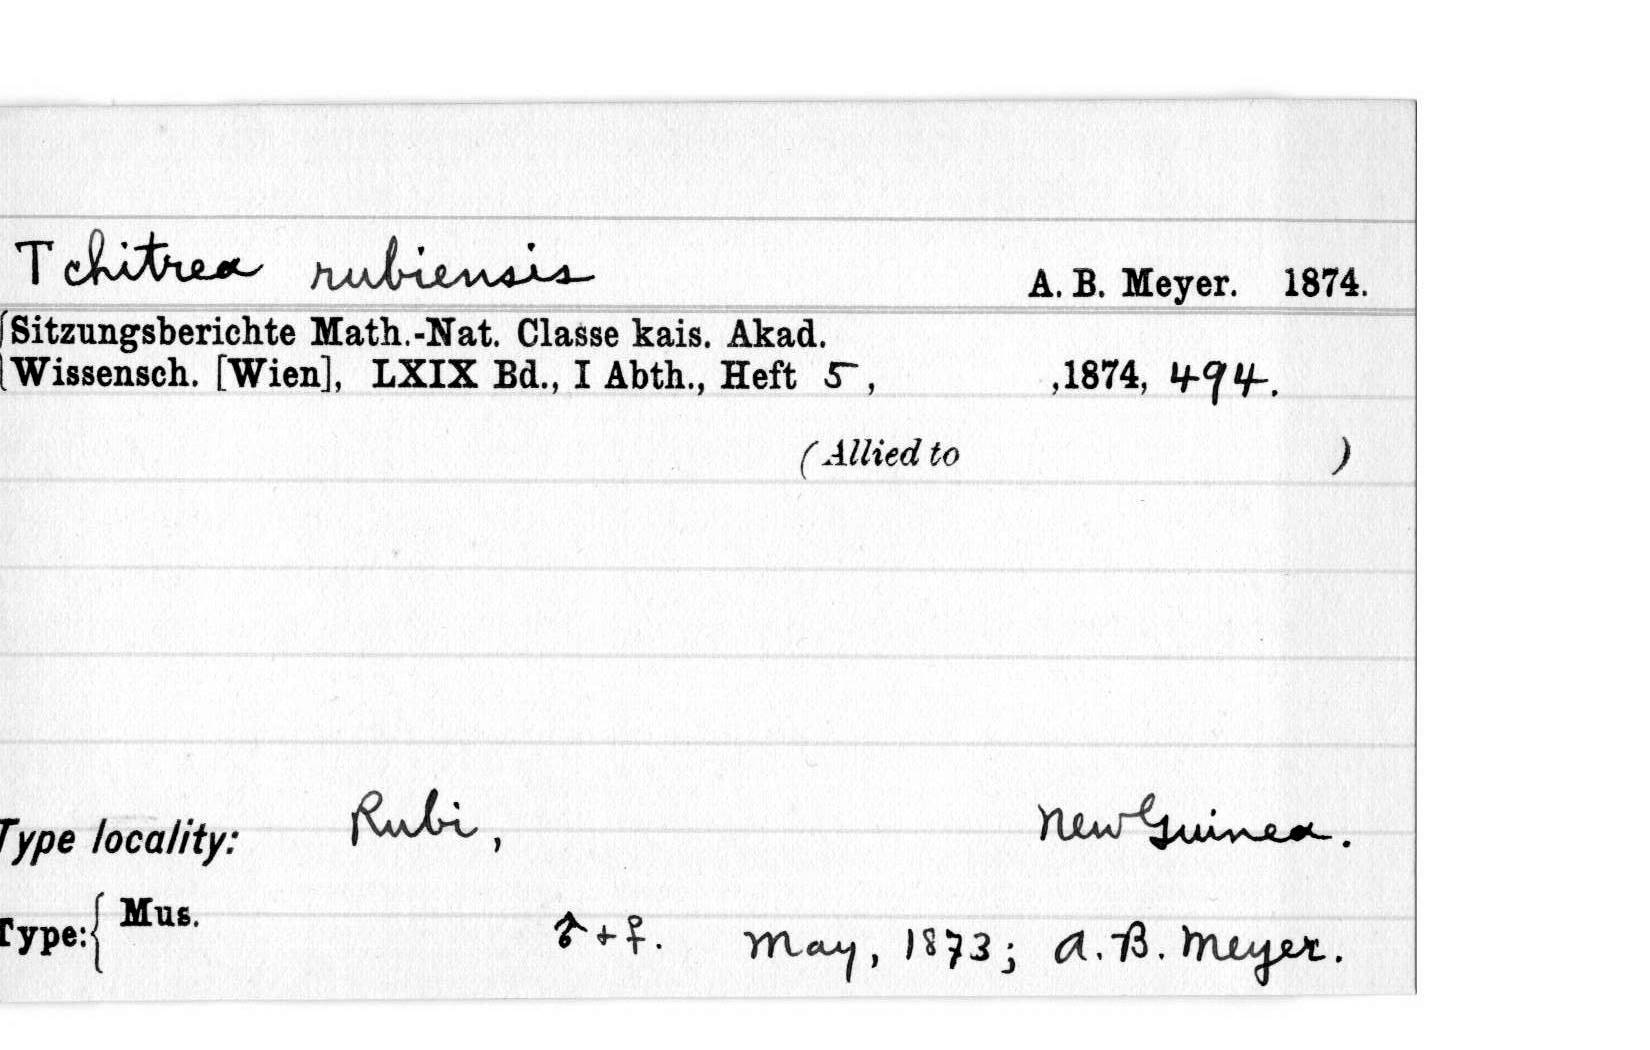 Tchitrea rubiensis A. B. Meyer. 1874.
Sitzungsberichte Math.-Nat. Classe kais. Akad.
Wissensch. [Wien], LXIX Bd., I Abth., Heft 5, ,1874, 494.
(Allied to )
Type locality: Rubi, New Guinea.
Type: Mus. ♂ + ♀. May, 1873; A. B. Meyer.